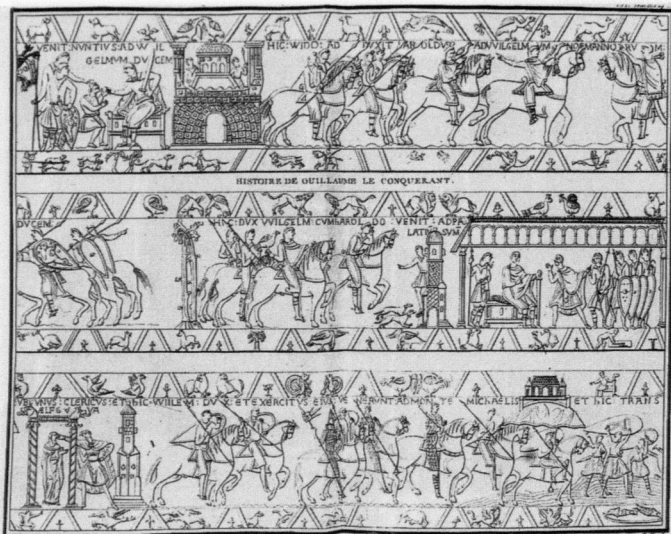 VENIT:NUNTIUS:AD WIL
GELMUM DUCEM
HIC:WIDO:AD DUXIT HAROLDUM AD VVILGELMUM NORMANNORUM
HISTOIRE DE GUILLAUME LE CONQUERANT.
DUCEM
HIC:DUX VVILGELM:CUM HAROLDO:VENIT:AD PA
LATIUM SUUM
UBI UNUS:CLERICUS:ET HIC·WILLEM:DUX:ET EXERCITUS EIUS VENERUNT AD MONTE MICHAELIS ET HIC TRANS
ÆLFGYVA